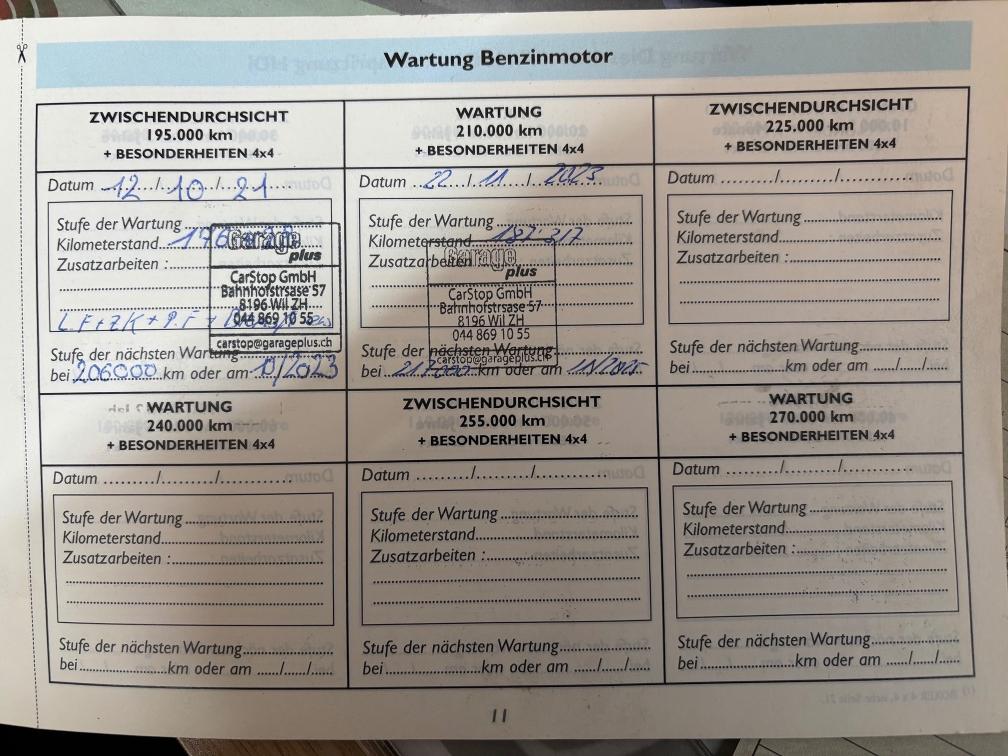 Wartung Benzinmotor
ZWISCHENDURCHSICHT
195.000 km
+ BESONDERHEITEN 4x4
Datum 12/10/21
Stufe der Wartung
Kilometerstand
Zusatzarbeiten :
Garage
plus
CarStop GmbH
Bahnhofstrsase 57
8196 Wil ZH
044 869 10 55
carstop@garageplus.ch
L.F+ZK+P.F+
Stufe der nächsten Wartung
bei 206000 km oder am 10/2023
WARTUNG
210.000 km
+ BESONDERHEITEN 4x4
Datum 22/11/2023
Stufe der Wartung
Kilometerstand 187.317
Zusatzarbeiten
Garage
plus
CarStop GmbH
Bahnhofstrsase 57
8196 Wil ZH
044 869 10 55
carstop@garageplus.ch
Stufe der nächsten Wartung
bei 217000 km oder am 11/2025
ZWISCHENDURCHSICHT
225.000 km
+ BESONDERHEITEN 4x4
Datum ........./........./.........
Stufe der Wartung
Kilometerstand
Zusatzarbeiten :
Stufe der nächsten Wartung
bei km oder am ....../....../......
WARTUNG
240.000 km
+ BESONDERHEITEN 4x4
Datum ........./........./.........
Stufe der Wartung
Kilometerstand
Zusatzarbeiten :
Stufe der nächsten Wartung
bei km oder am ....../....../......
ZWISCHENDURCHSICHT
255.000 km
+ BESONDERHEITEN 4x4
Datum ........./........./.........
Stufe der Wartung
Kilometerstand
Zusatzarbeiten :
Stufe der nächsten Wartung
bei km oder am ....../....../......
WARTUNG
270.000 km
+ BESONDERHEITEN 4x4
Datum ........./........./.........
Stufe der Wartung
Kilometerstand
Zusatzarbeiten :
Stufe der nächsten Wartung
bei km oder am ....../....../......
11